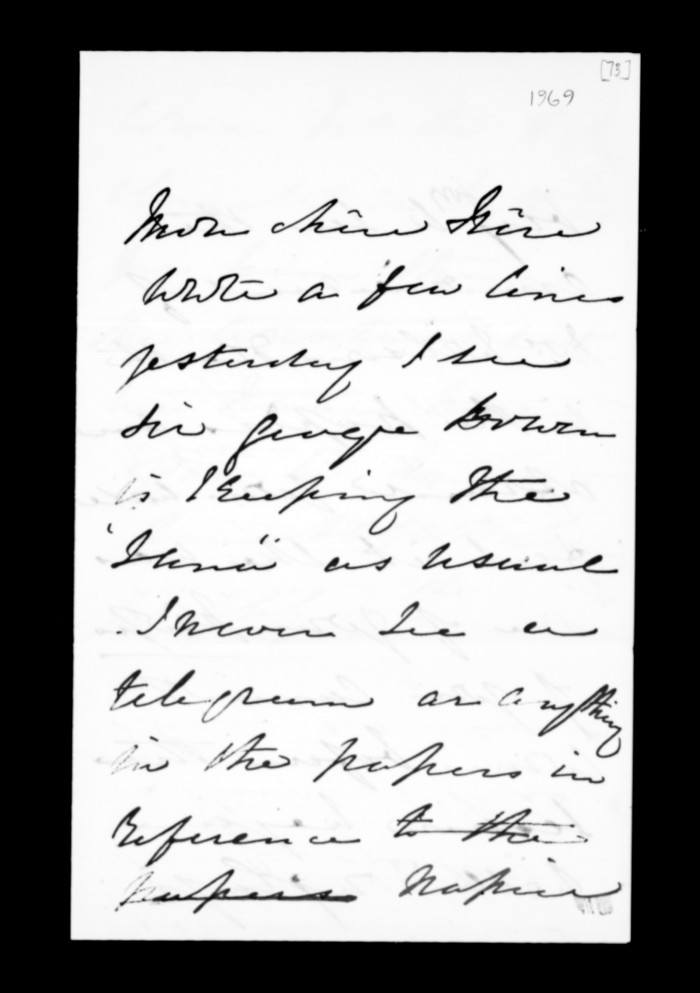 [73]
1969
Mon chère Frère
Wrote a few lines
yesterday I see
Sir George Bowen
is keeping the
as usual
I never see a
telegram or anything
in the papers in
reference to the
papers Napier